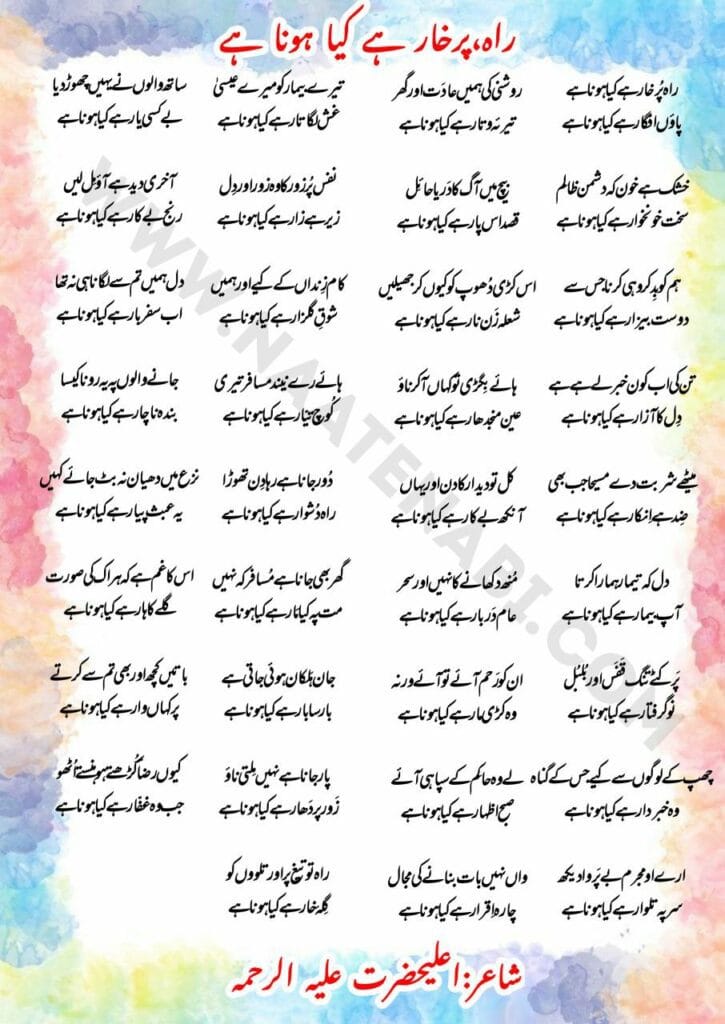 راہ، پرخار ہے کیا ہونا ہے
راہ پُرخار ہے کیا ہونا ہے
پاؤں افگار ہے کیا ہونا ہے
خشک ہے خون کہ دشمن ظالم
سخت خونخوار ہے کیا ہونا ہے
ہم کو بِد کر وہی کرنا جس سے
دوست بیزار ہے کیا ہونا ہے
تن کی اب کون خبر لے ہے ہے
دِل کا آزار ہے کیا ہونا ہے
میٹھے شربت دے مسیحا جب بھی
ضِد ہے اِنکار ہے کیا ہونا ہے
دل کہ تیمار ہمارا کرتا
آپ بیمار ہے کیا ہونا ہے
پَر کٹے تنگ قَفَس اور بُلبُل
نَو گرفتار ہے کیا ہونا ہے
چھپ کے لوگوں سے کیے جس کے گناہ
وہ خبردار ہے کیا ہونا ہے
ارے او مجرم بے پروا دیکھ
سر پہ تلوار ہے کیا ہونا ہے
روشنی کی ہمیں عادت اور گھر
تیرۂ و تار ہے کیا ہونا ہے
بیچ میں آگ کا دَریا حائِل
قصد اس پار ہے کیا ہونا ہے
اس کڑی دُھوپ کو کیوں کر جھیلیں
شعلہ زَن نار ہے کیا ہونا ہے
ہائے بِگڑی تو کہاں آکر ناؤ
عین منجدھار ہے کیا ہونا ہے
کل تو دیدار کا دن اور یہاں
آنکھ بے کار ہے کیا ہونا ہے
مُنھ دکھانے کا نہیں اور سحر
عام دَربار ہے کیا ہونا ہے
ان کو رَحم آئے تو آئے ورنہ
وہ کڑی مار ہے کیا ہونا ہے
لے وہ حاکم کے سپاہی آئے
صبح اظہار ہے کیا ہونا ہے
واں نہیں بات بنانے کی مجال
چارہ اقرار ہے کیا ہونا ہے
تیرے بیمار کو میرے عیسیٰ
غش لگاتار ہے کیا ہونا ہے
نفس پُرزور کا وہ زور اور دِل
زیر ہے زار ہے کیا ہونا ہے
کام زِنداں کے کیے اور ہمیں
شوقِ گلزار ہے کیا ہونا ہے
ہائے رے نیند مسافر تیری
کُوچ تیّار ہے کیا ہونا ہے
دُور جانا ہے رہا دِن تھوڑا
راہ دُشوار ہے کیا ہونا ہے
گھر بھی جانا ہے مُسافر کہ نہیں
مت پہ کیا مار ہے کیا ہونا ہے
جان ہلکان ہوئی جاتی ہے
بار سا بار ہے کیا ہونا ہے
پار جانا ہے نہیں مِلتی ناؤ
زَور پر دَھار ہے کیا ہونا ہے
راہ تو تیغ پر اور تلووں کو
گِلہ خار ہے کیا ہونا ہے
ساتھ والوں نے یہیں چھوڑ دیا
بے کسی یار ہے کیا ہونا ہے
آخری دید ہے آؤ مِل لیں
رنج بے کار ہے کیا ہونا ہے
دل ہمیں تم سے لگانا ہی نہ تھا
اب سفر بار ہے کیا ہونا ہے
جانے والوں پہ یہ رونا کیسا
بندہ ناچار ہے کیا ہونا ہے
نزع میں دھیان نہ بٹ جائے کہیں
یہ عبث پیار ہے کیا ہونا ہے
اس کا غم ہے کہ ہر اک کی صورت
گلے کا ہار ہے کیا ہونا ہے
باتیں کچھ اور بھی تم سے کرتے
پر کہاں وار ہے کیا ہونا ہے
کیوں رضاؔ کُڑھتے ہو ہنستے اُٹھو
جب وہ غفار ہے کیا ہونا ہے
شاعر: اعلیٰحضرت علیہ الرحمہ
WWW.NAATENABI.COM